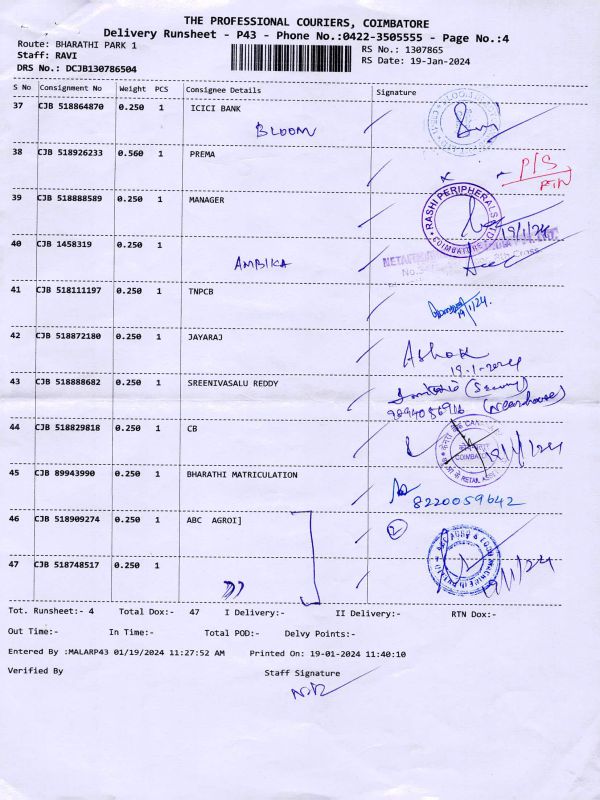 THE PROFESSIONAL COURIERS, COIMBATORE
Delivery Runsheet - P43 - Phone No.:0422-3505555 - Page No.:4
Route: BHARATHI PARK 1 RS No.: 1307865
Staff: RAVI RS Date: 19-Jan-2024
DRS No.: DCJB130786504
S No Consignment No Weight PCS Consignee Details Signature
37 CJB 518864870 0.250 1 ICICI BANK
BLOOM
38 CJB 518926233 0.560 1 PREMA
P/S
39 CJB 518888589 0.250 1 MANAGER
RASHI PERIPHERALS LTD
COIMBATORE
19/1/24
40 CJB 1458319 0.250 1
AMBIKA
41 CJB 518111197 0.250 1 TNPCB
19/1/24.
42 CJB 518872180 0.250 1 JAYARAJ
Ashok
19.1-2024
43 CJB 518888682 0.250 1 SREENIVASALU REDDY
44 CJB 518829818 0.250 1 CB
45 CJB 89943990 0.250 1 BHARATHI MATRICULATION
8220059642
46 CJB 518909274 0.250 1 ABC AGROI]
2
47 CJB 518748517 0.250 1
Tot. Runsheet:- 4 Total Dox:- 47 I Delivery:- II Delivery:- RTN Dox:-
Out Time:- In Time:- Total POD:- Delvy Points:-
Entered By :MALARP43 01/19/2024 11:27:52 AM Printed On: 19-01-2024 11:40:10
Verified By Staff Signature